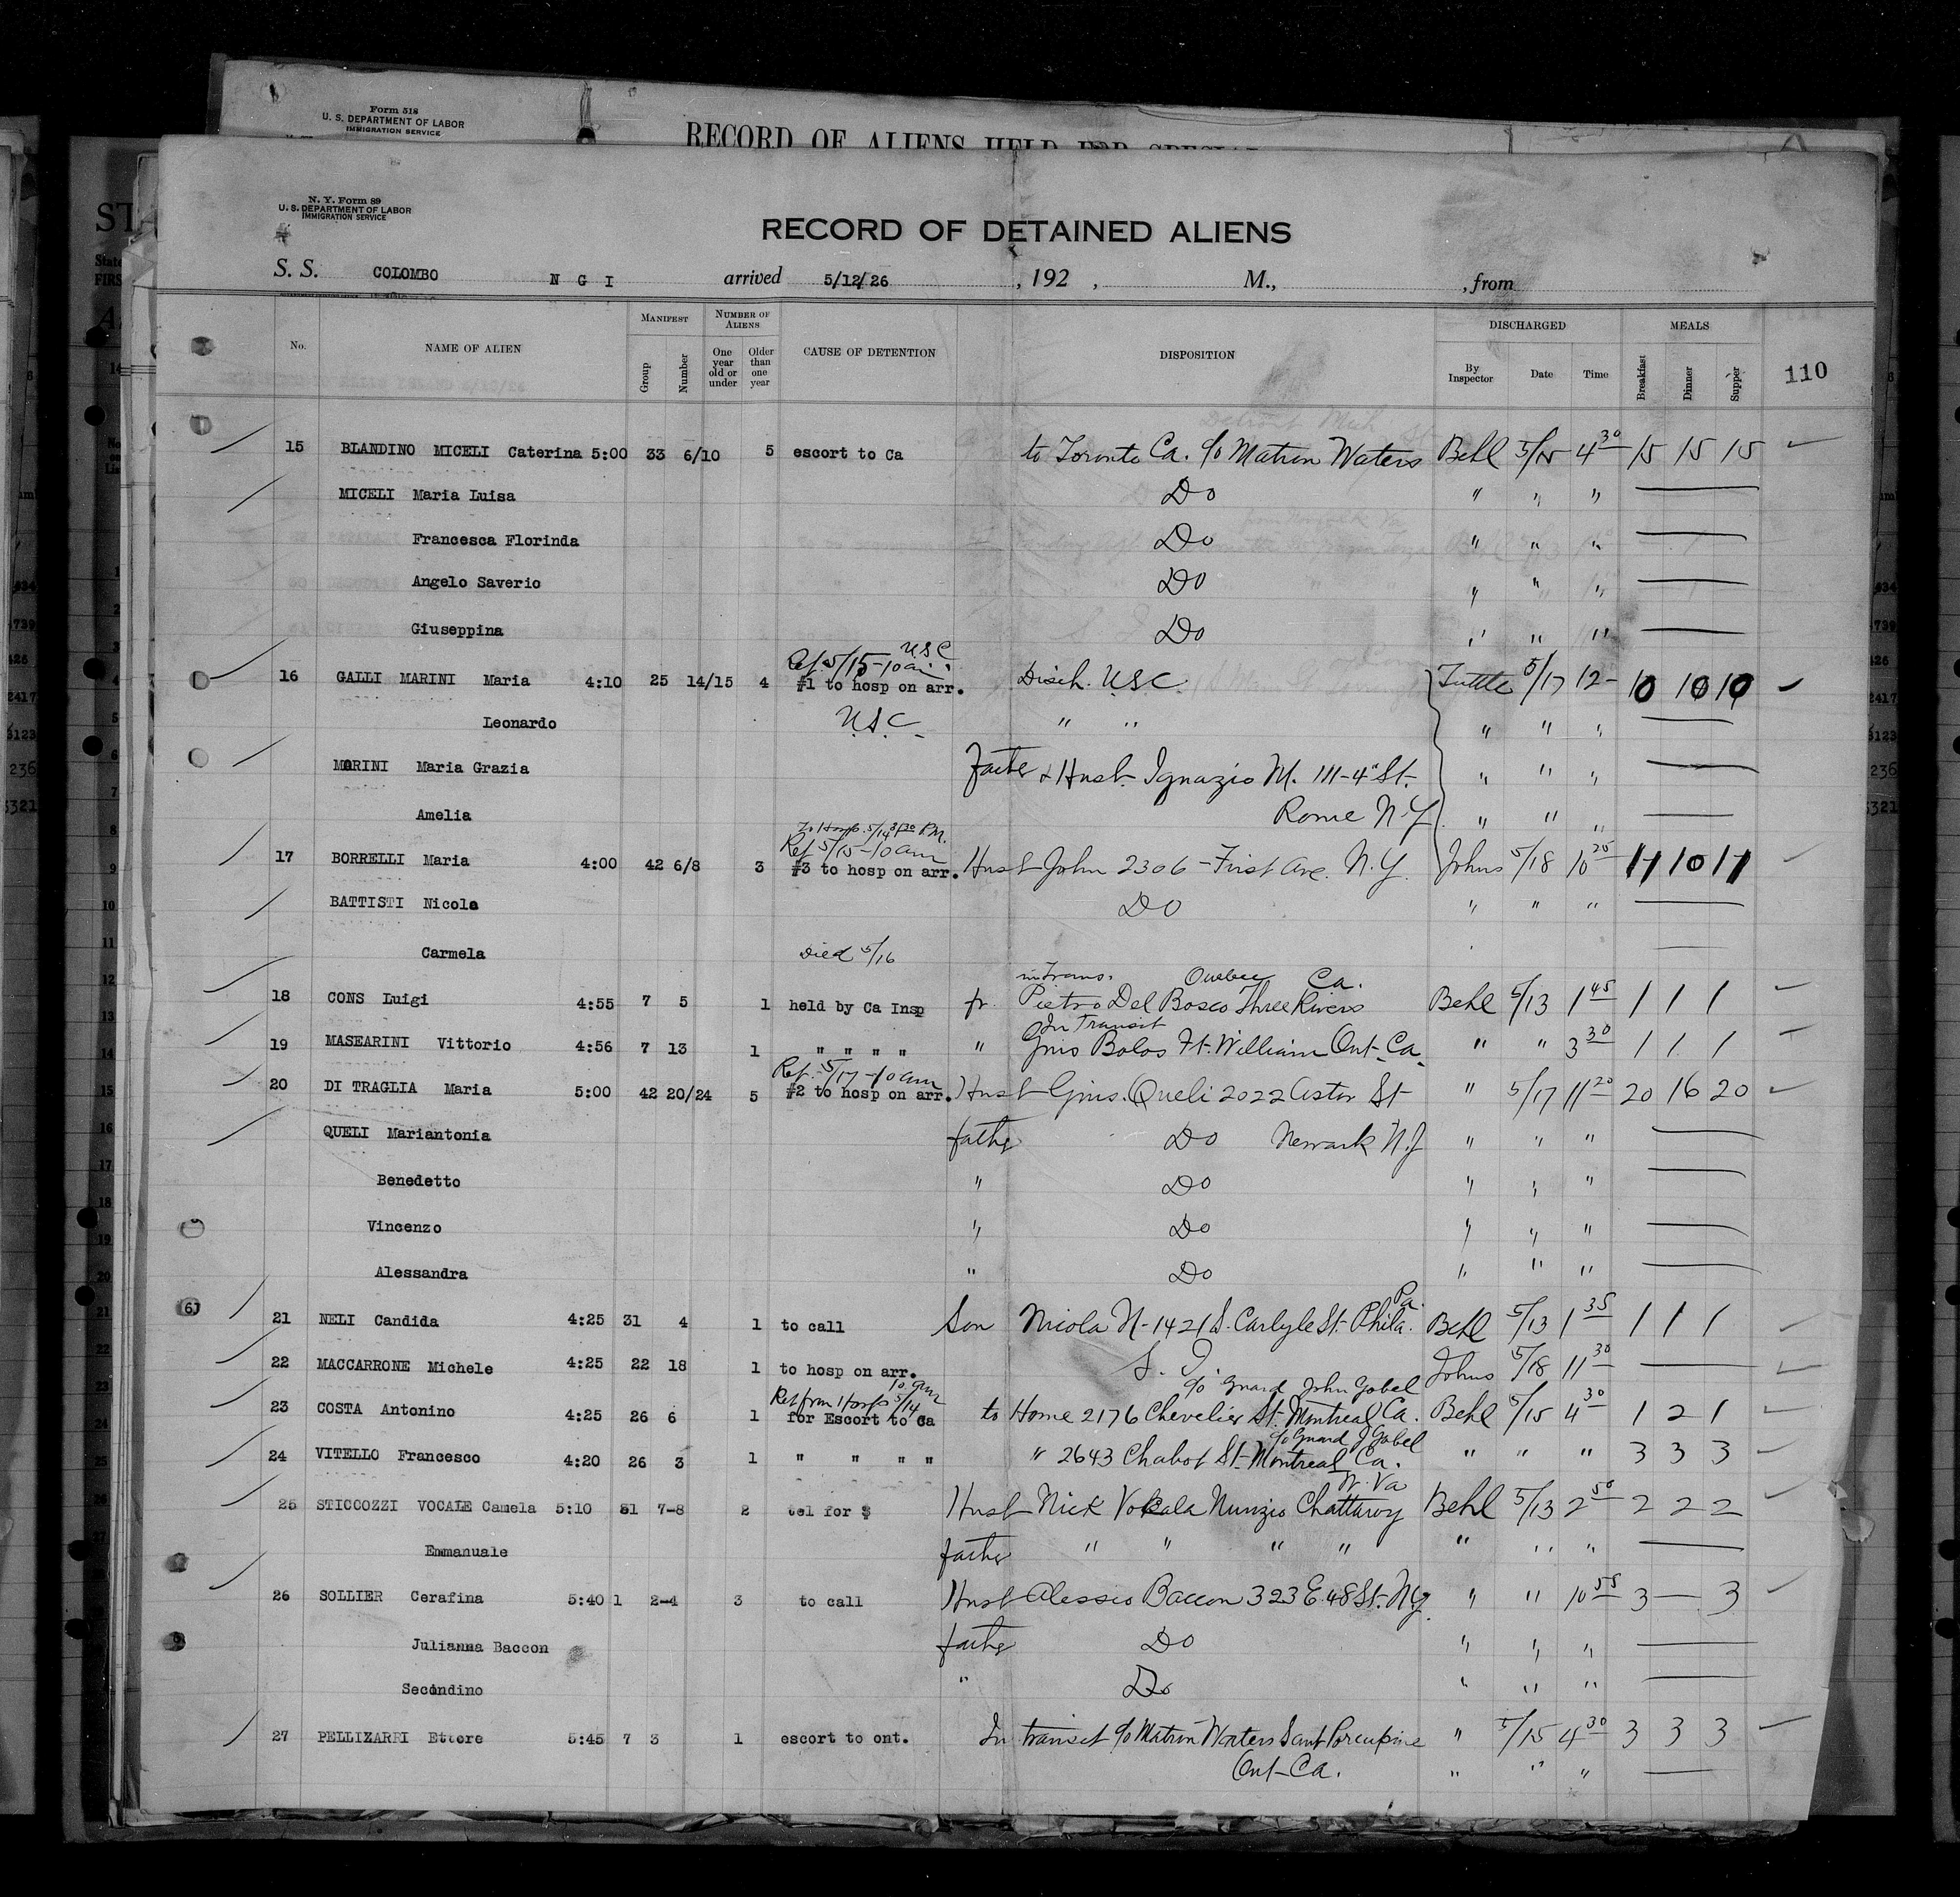 Form 518
U. S. DEPARTMENT OF LABOR
IMMIGRATION SERVICE
RECORD OF ALIENS HELD FOR SPECIAL
N. Y. Form 89
U. S. DEPARTMENT OF LABOR
IMMIGRATION SERVICE
RECORD OF DETAINED ALIENS
S. S. COLOMBO N G I arrived 5/12/26 , 192 , M., , from
No. NAME OF ALIEN MANIFEST Group Number NUMBER OF ALIENS One year old or under Older than one year CAUSE OF DETENTION DISPOSITION DISCHARGED By Inspector Date Time MEALS Breakfast Dinner Supper 110
15 BLANDINO MICELI Caterina 5:00 33 6/10 5 escort to Ca to Toronto Ca. c/o Matron Waters Behl 5/15 4 30 15 15 15
MICELI Maria Luisa Do " " "
Francesca Florinda Do " " "
Angelo Saverio Do " " "
Giuseppina Do " " "
USC
Ref. 5/15-10am
16 GALLI MARINI Maria 4:10 25 14/15 4 #1 to hosp on arr. Disch. USC Tuttle 5/17 12- 10 10 10
Leonardo U.S.C. " " " " "
MARINI Maria Grazia Father & Husb. Ignazio M. 111-4" St. " " "
Amelia Rome N.Y. " " "
To Hosp. 5/14 3:30 P.M.
Ref 5/15-10am
17 BORRELLI Maria 4:00 42 6/8 3 #3 to hosp on arr. Husb John 2306-First Ave. N.Y. Johns 5/18 10 25 11 10 11
BATTISTI Nicola DO " " "
Carmela Died 5/16
in Trans. Quebec Ca.
18 CONS Luigi 4:55 7 5 1 held by Ca Insp fr. Pietro Del Bosco Three Rivers Behl 5/13 1 45 1 1 1
In Transit
19 MASEARINI Vittorio 4:56 7 13 1 " " " " " Gius Bolos Ft. William Ont-Ca. " " 3 30 1 1 1
Ref. 5/17-10am
20 DI TRAGLIA Maria 5:00 42 20/24 5 #2 to hosp on arr. Husb Gius. Queli 2022 Astor St " 5/17 11 20 20 16 20
QUELI Mariantonia father Do Newark N.J " " "
Benedetto " Do " " "
Vincenzo " Do " " "
Alessandra " Do " " "
Pa.
21 NELI Candida 4:25 31 4 1 to call Son Nicola N-1421 S. Carlyle St. Phila. Behl 5/13 1 35 1 1 1
22 MACCARRONE Michele 4:25 22 18 1 to hosp on arr. S. I. Johns 5/18 11 30
Ret from Hosp 5/14 10 am c/o Guard John Gobel
23 COSTA Antonino 4:25 26 6 1 for Escort to Ca to Home 2176 Chevelier St. Montreal Ca. Behl 5/15 4 30 1 2 1
c/o Guard J Gobel
24 VITELLO Francesco 4:20 26 3 1 " " " " " 2643 Chabot St-Montreal Ca. " " " 3 3 3
W. Va
25 STICCOZZI VOCALE Camela 5:10 31 7-8 2 tel for $ Husb Nick Vokala Nunzio Chattaroy Behl 5/13 2 50 2 2 2
Emmanuale father " " " " " " "
26 SOLLIER Cerafina 5:40 1 2-4 3 to call Husb Alessio Baccon 323 E. 48 St. N.Y. " " 10 55 3 — 3
Julianna Baccon father Do " " "
Secondino " Do " " "
27 PELLIZARRI Ettore 5:45 7 3 1 escort to ont. In transit c/o Matron Waters Porcupine " 5/15 4 30 3 3 3
Ont-Ca. " " "